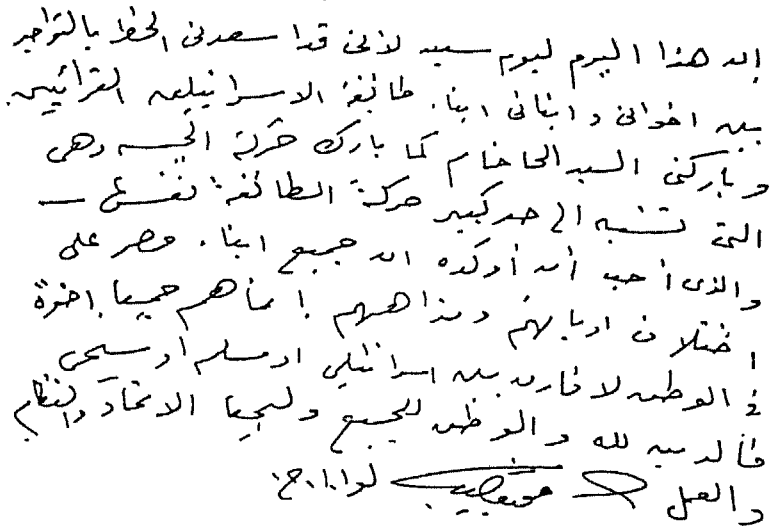 إن هذا اليوم ليوم سعيد لأنى قد أسعدنى الحظ بالتواجد
بين اخوانى وابنائى أبناء طائفة الاسرائيلين القرائيين
وباركنى السيد الحاخام كما بارك حركة الجيش وهى
التى تشبه الى حد كبير حركة الطائفة نفسها ـ
والذى أحب أن أؤكده ان جميع ابناء مصر على
اختلاف اديانهم ومذاهبهم انما هم جميعا إخوة
فى الوطن لا فارق بين اسرائيلى او مسلم أو مسيحى
فالدين لله والوطن للجميع وليحيا الاتحاد والنظام
والعمل محمد نجيب لواء ا.ح.